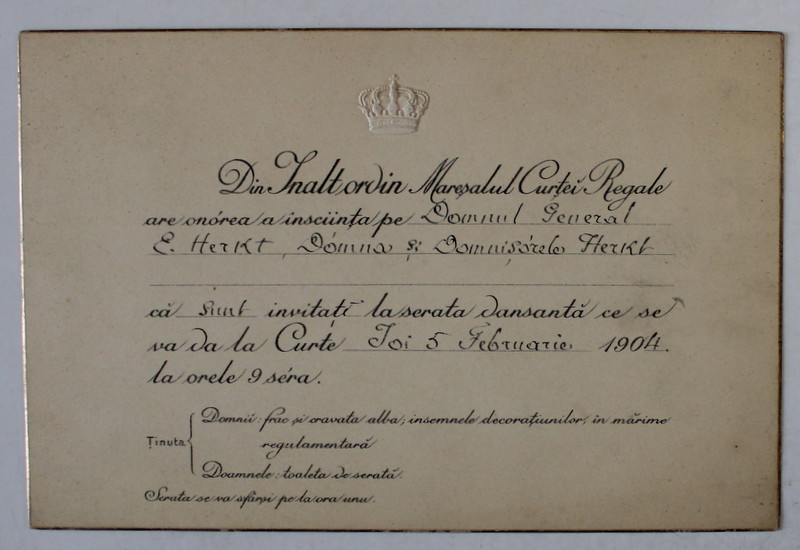 Din Inalt ordin Mareșalul Curței Regale
are onórea a însciința pe Domnul General
E. Herkt, Dómna și Domnișórele Herkt
că sunt invitați la serata dansantă ce se
va da la Curte Joi 5 Februarie 1904.
la orele 9 séra.
Domnii: frac și cravata alba; insemnele decorațiunilor, în mărime
Ținuta
regulamentară
Doamnele: toaleta de serată.
Serata se va sfârși pe la ora unu.